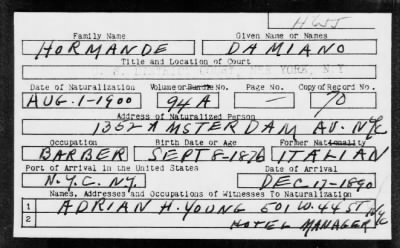 HWJ
Family Name Given Name or Names
HORMANDE DAMIANO
Title and Location of Court
U.S. DISTRICT COURT, NEW YORK, N.Y.
Date of Naturalization Volume or Bundle No. Page No. Copy of Record No.
AUG. 1-1900 94A — 70
Address of Naturalized Person
1352 AMSTERDAM AV. NYC
Occupation Birth Date or Age Former Nationality
BARBER SEPT 8-1876 ITALIAN
Port of Arrival in the United States Date of Arrival
N.Y.C. N.Y. DEC. 17-1890
Names, Addresses and Occupations of Witnesses To Naturalization
1 ADRIAN H. YOUNG 501 W. 44 ST NYC
2 HOTEL MANAGER